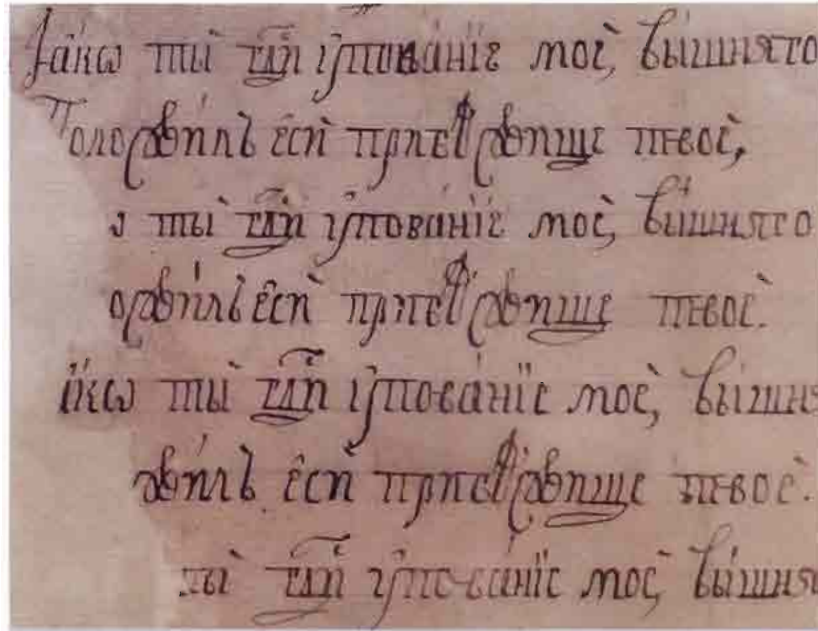 Ꙗ҆́кѡ ты̀ гд҇и ᲂу҆пова́нїе моѐ, вы́шнѧго
Положи́лъ є҆сѝ прибѣ́жище твоѐ,
ѡ ты̀ гд҇и ᲂу҆пова́нїе моѐ, вы́шнѧго
ожи́лъ є҆сѝ прибѣ́жище твоѐ.
ꙗ҆́кѡ ты̀ гд҇и ᲂу҆пова́нїе моѐ, вы́шнѧ
жи́лъ є҆сѝ прибѣ́жище твоѐ.
ты̀ гд҇и ᲂу҆пова́нїе моѐ, вы́шнѧ